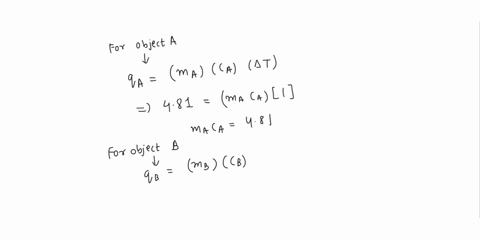 For object A
↓
q_A = (m_A) (C_A) (ΔT)
=) 4.81 = (m_A C_A) [1
m_A C_A = 4.81
For object B
↓
q_B = (m_B) (C_B)